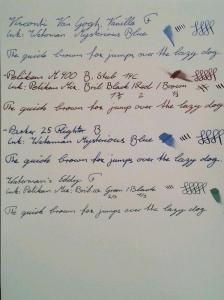 Visconti Van Gogh Vanilla F
ink: Waterman Mysterious Blue
The quick brown fox jumps over the lazy dog.
Pelikan M400 B. Stub 14C
ink: Pelikan Mix Bril Black / Red / Brown
The quick brown fox jumps over the lazy dog
Parker 25 Flighter B
ink: Waterman Mysterious Blue
The quick brown fox jumps over the lazy dog.
Waterman's Eddy F
ink: Pelikan Mix: Bril Green / Black
2/3
The quick brown fox jumps over the lazy dog.